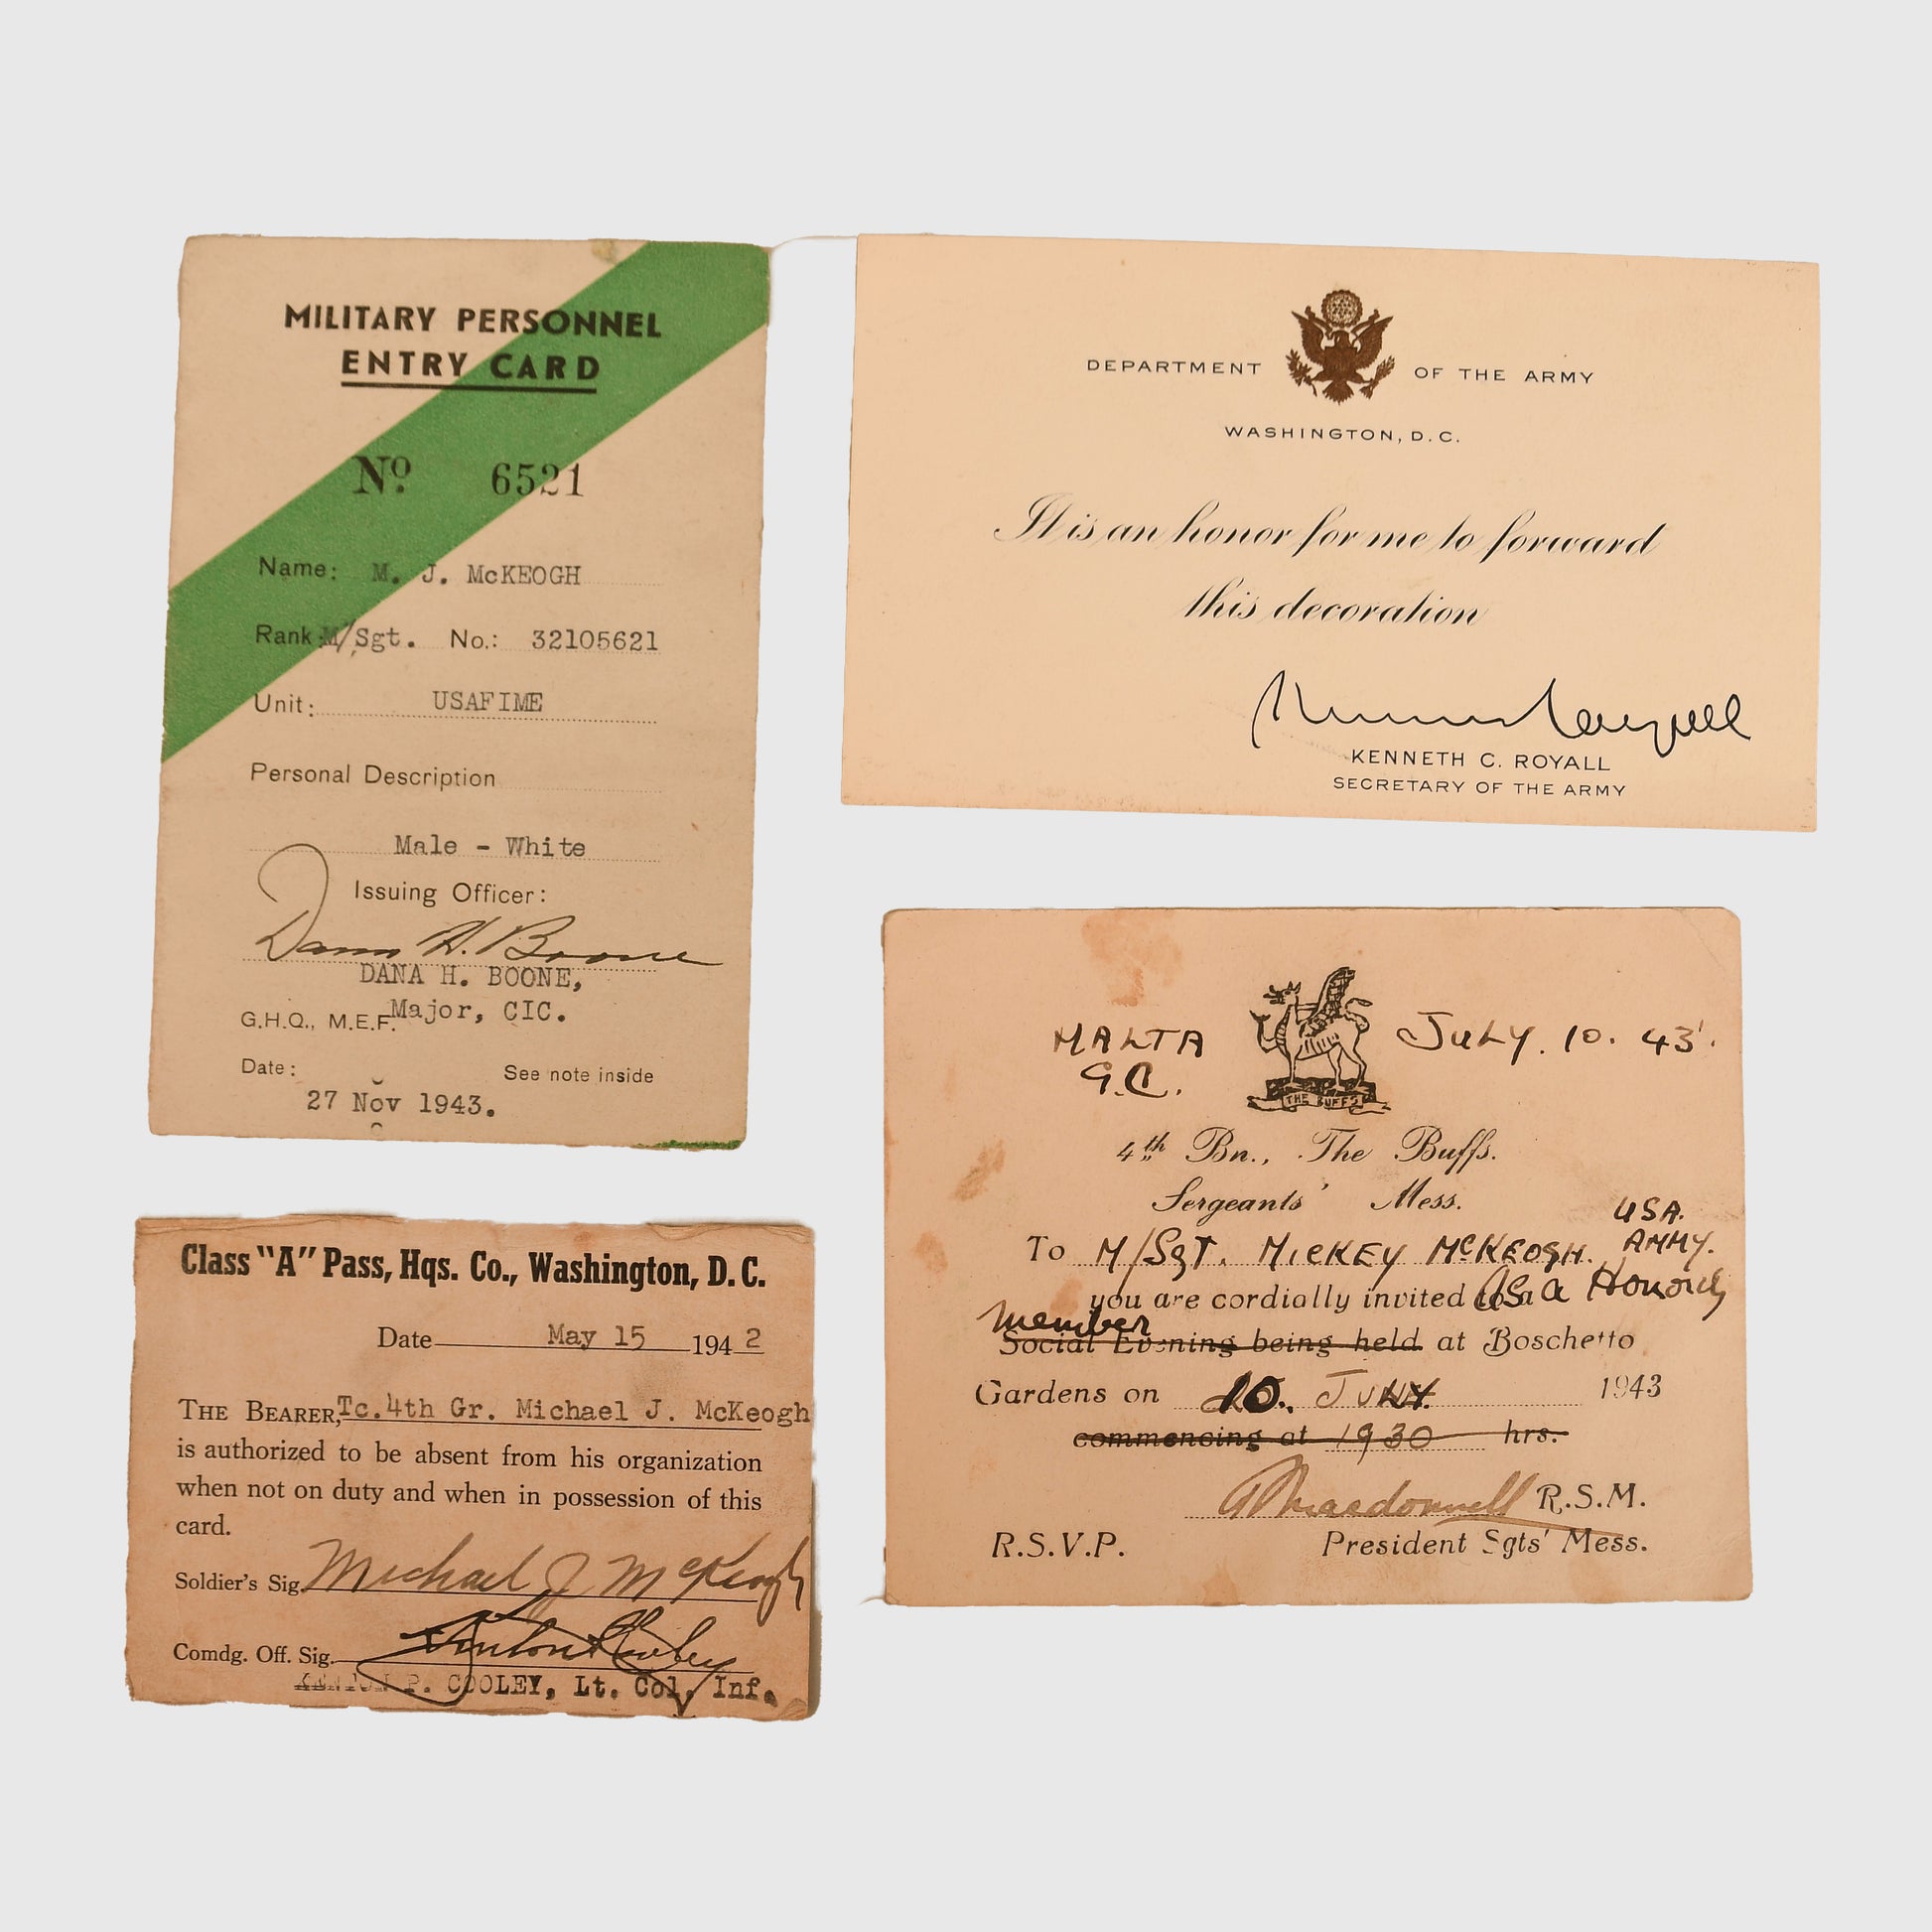 MILITARY PERSONNEL
ENTRY CARD
Nº 6521
Name: M. J. McKEOGH
Rank: M/Sgt. No.: 32105621
Unit: USAFIME
Personal Description
Male - White
Issuing Officer:
Dana H. Boone
DANA H. BOONE,
Major, CIC.
G.H.Q., M.E.F.
Date: See note inside
27 Nov 1943.
DEPARTMENT OF THE ARMY
WASHINGTON, D.C.
It is an honor for me to forward
this decoration
KENNETH C. ROYALL
SECRETARY OF THE ARMY
Class "A" Pass, Hqs. Co., Washington, D.C.
Date May 15 1942
THE BEARER, Tc.4th Gr. Michael J. McKeogh
is authorized to be absent from his organization
when not on duty and when in possession of this
card.
Soldier's Sig. Michael J McKeogh
Comdg. Off. Sig. Kenton P Cooley
KENTON P. COOLEY, Lt. Col, Inf.
MALTA JULY. 10. 43'.
G.C.
THE BUFFS
4th Bn., The Buffs.
Sergeants' Mess.
USA.
To M/SGT. MICKEY McKEOGH. ARMY.
you are cordially invited as a Honorary
member
Social Evening being held at Boschetto
Gardens on 10. JULY. 1943
commencing at 1930 hrs.
Macdonnell R.S.M.
R.S.V.P. President Sgts' Mess.